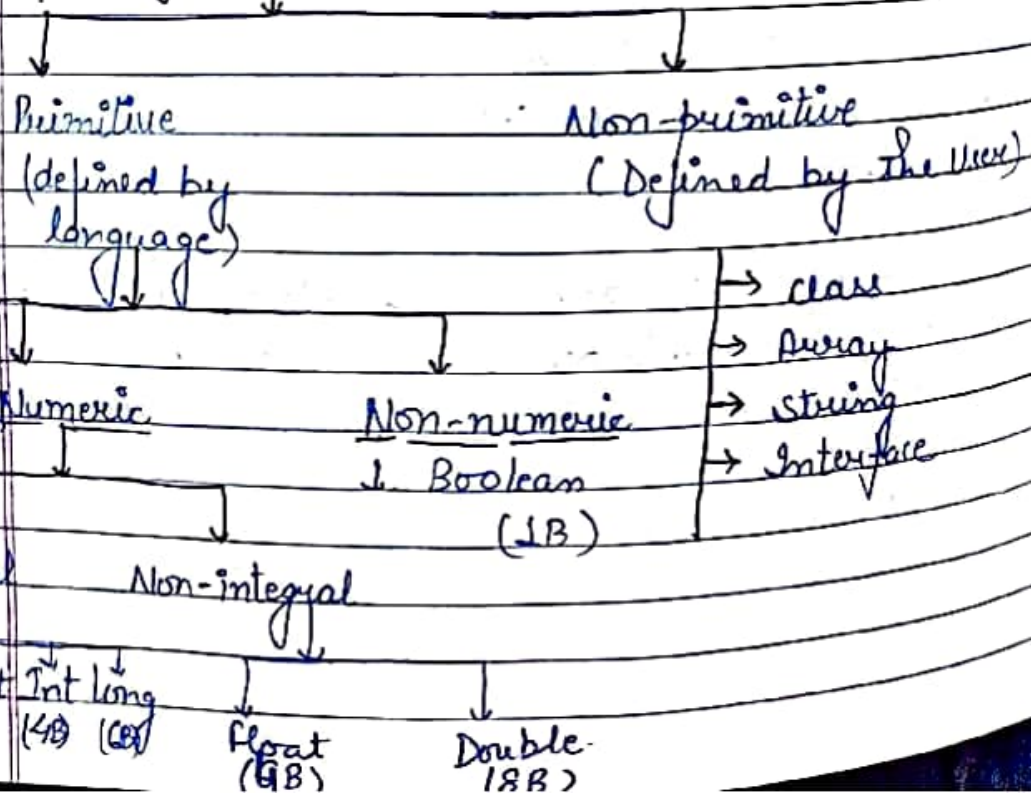 Primitive
(defined by
language)
Non-primitive
(Defined by the User)
→ class
→ Array
→ string
→ Interface
Numeric
Non-numeric
↓ Boolean
(1B)
Non-integral
Int long
(4B)
Float
(4B)
Double
(8B)